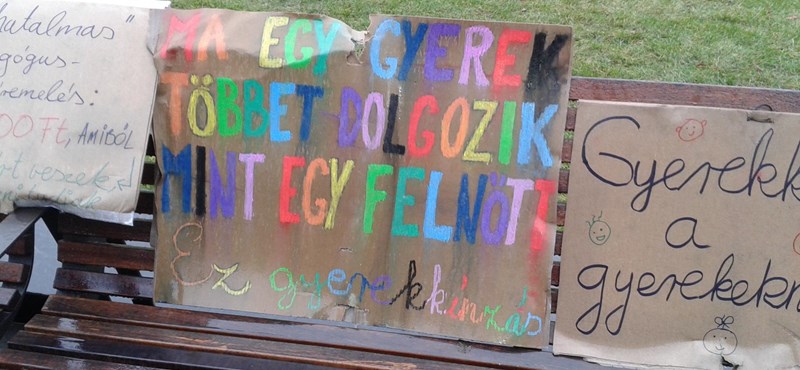 hatalmas"
gógus-
emelés:
00 Ft, AMIBŐL
MA EGY GYEREK
TÖBBET DOLGOZIK
MINT EGY FELNŐTT
Ez gyerekkínzás
Gyerekk
a
gyerekekn